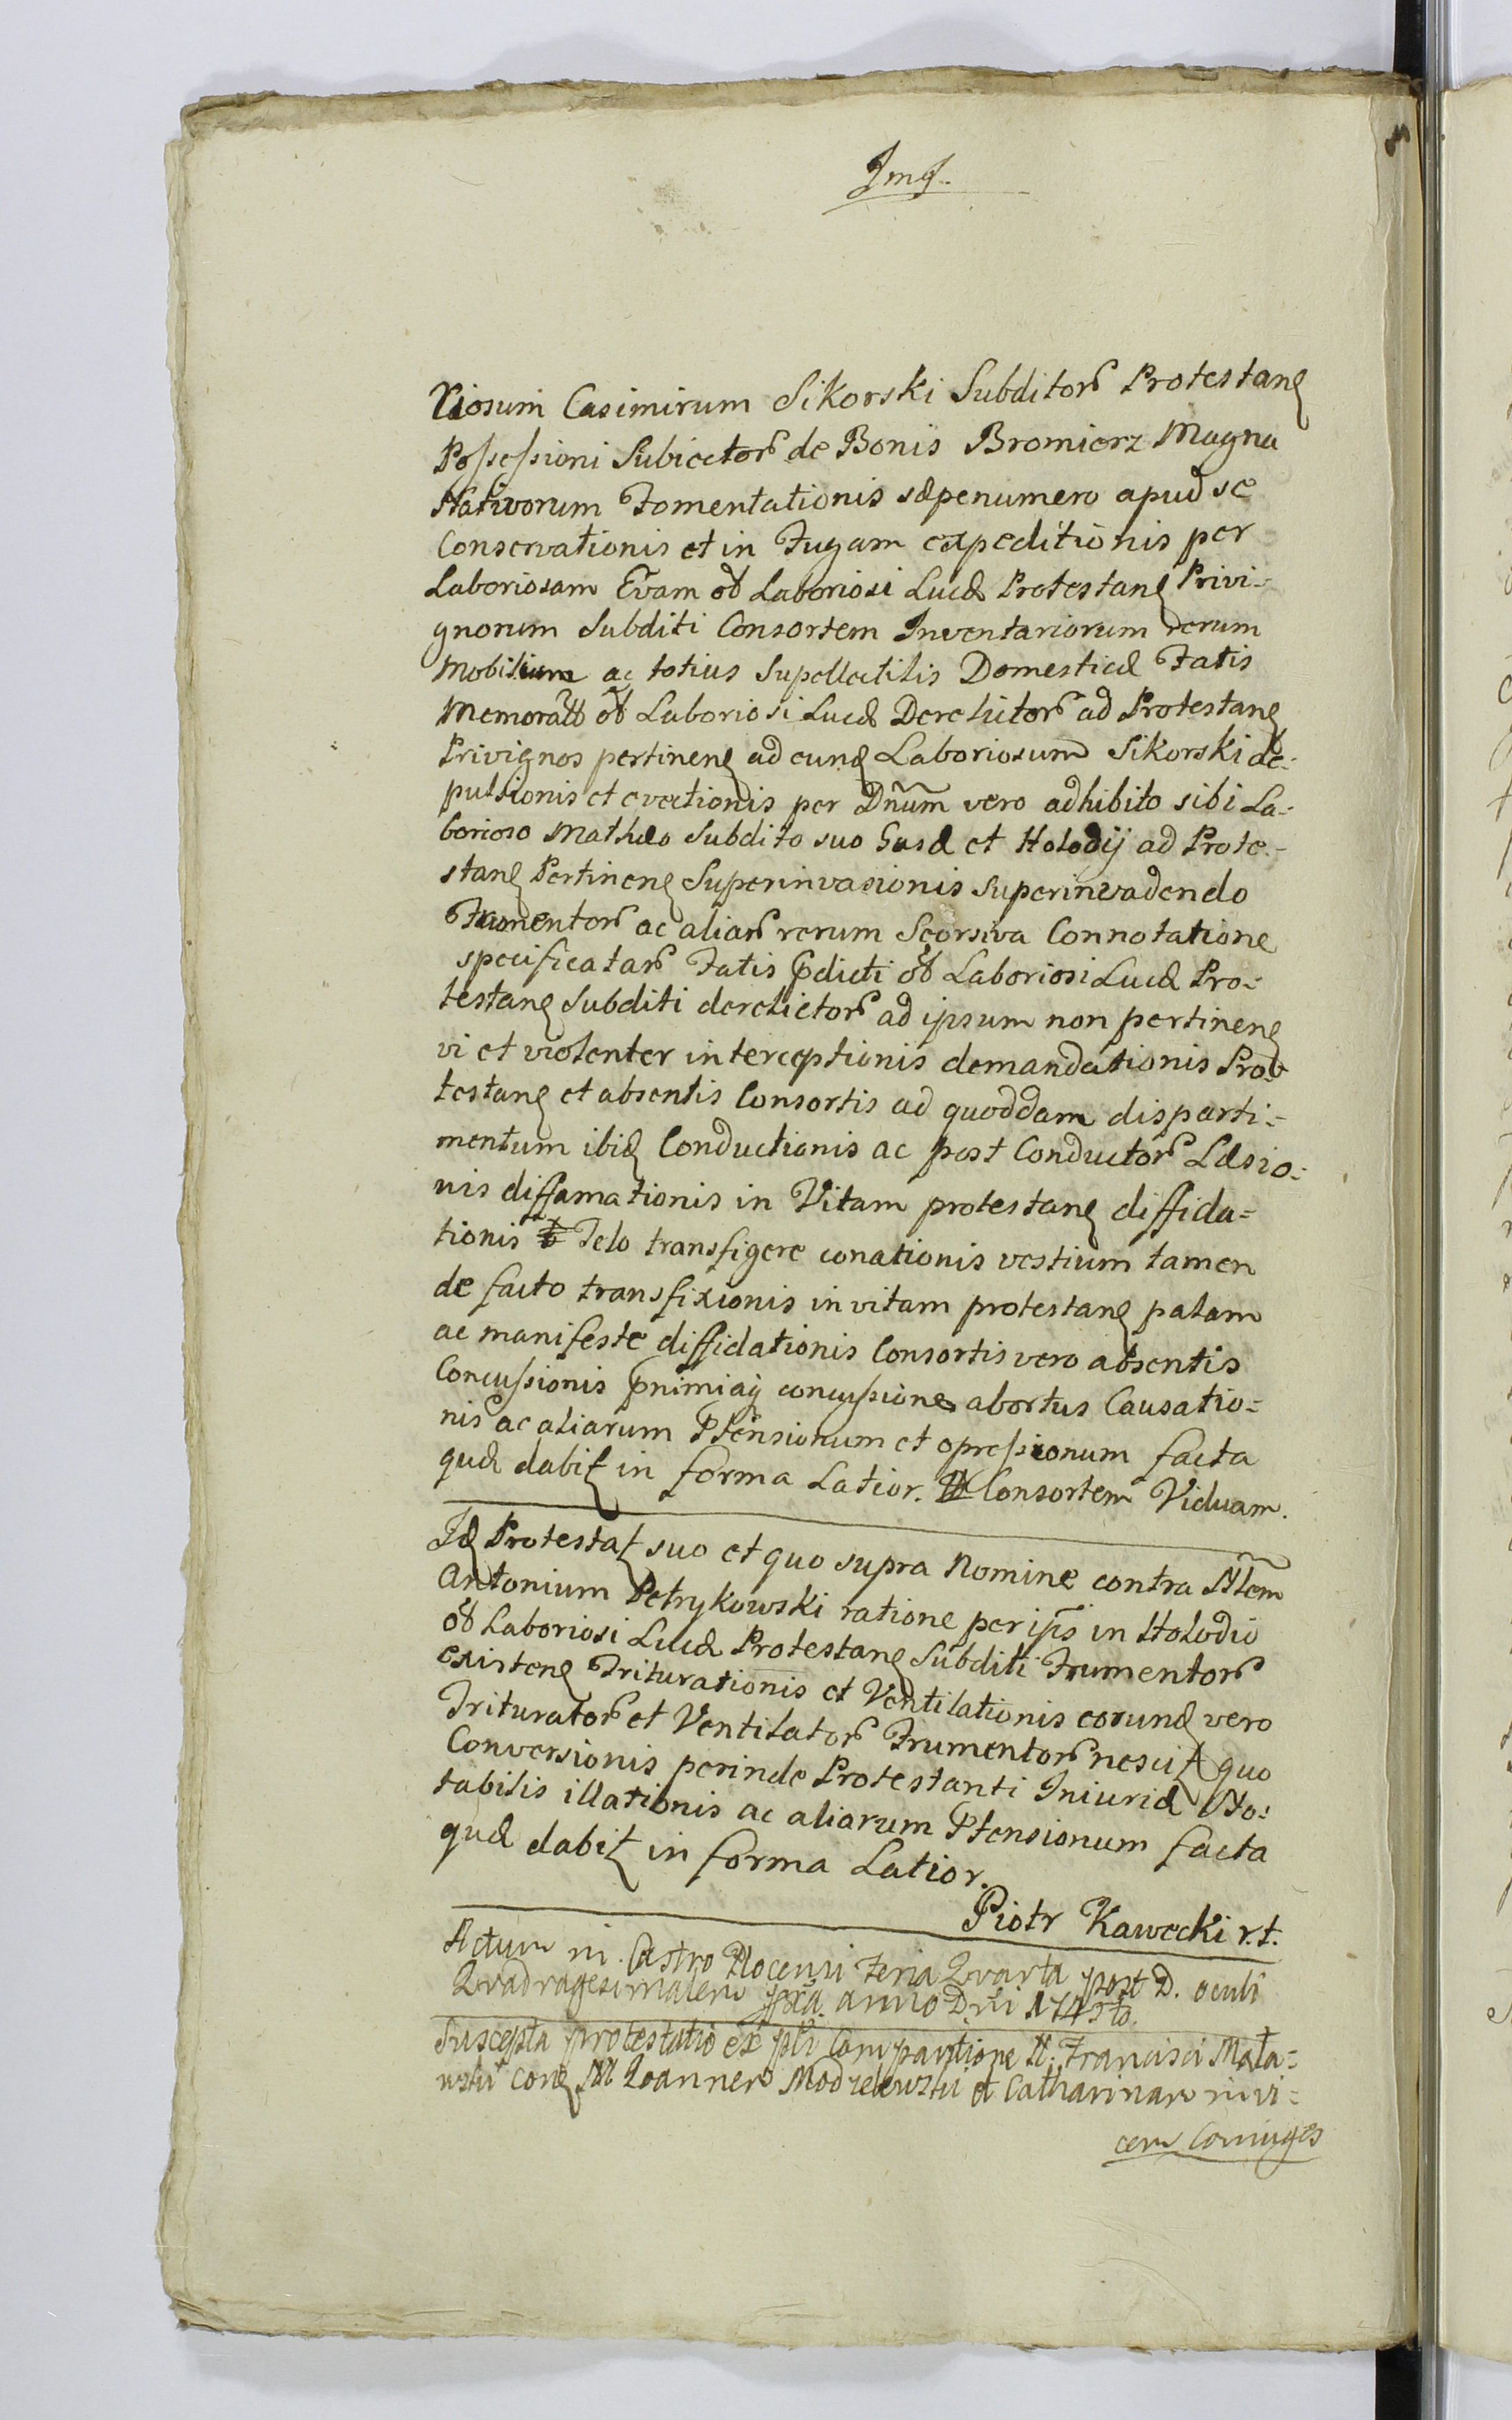 riosum Casimirum Sikorski Subditor Protestan
Possessioni Subiector de Bonis Bromierz Magna
Nativorum Fomentationis sæpenumero apud se
Conservationis et in Fugam expeditionis per
Laboriosam Evam ol Laboriosi Lucæ Protestan Privi-
gnorum Subditi Consortem Inventariorum rerum
Mobilium ac totius Supellectilis Domesticæ Fatis
Memorati ol Laboriosi Lucæ Derelictor ad Protestan
Privignos pertinen ad eund Laboriosum Sikorski de-
pulsionis et evectionis per Dnum vero adhibito sibi La-
borioso Mathæo Subdito suo Casæ et Holodij ad Prote-
stan Pertinen Superinvasionis superinvadendo
Frumentor ac aliar rerum Seorsiva Connotatione
specificatar Fatis pdicti ol Laboriosi Lucæ Pro-
testan Subditi derelictor ad ipsum non pertinen
vi et violenter interceptionis demandationis Pro-
testan et absentis Consortis ad quoddam disparti-
mentum ibid Conductionis ac post Conductor Læsio-
nis diffamationis in Vitam protestan diffida-
tionis Telo transfigere conationis vestium tamen
de facto transfixionis in vitam protestan palam
ac manifeste diffidationis Consortis vero absentis
Concussionis pnimiaq concussione abortus Causatio-
nis ac aliarum Ptensionum et opressionum facta
quæ dabit in forma Latior. Consortem Viduam.
Id Protestat suo et quo supra Nomine contra Nlem
Antonium Petrykowski ratione per ips in Holodio
ol Laboriosi Lucæ Protestan Subditi Frumentor
existen Triturationis et Ventilationis eorund vero
Triturator et Ventilator Frumentor nescit quo
Conversionis perinde Protestanti Iniuriæ No-
tabilis illationis ac aliarum Ptensionum facta
quæ dabit in forma Latior.
Piotr Kawecki r.t.
Actum in Castro Plocensi Feria Quarta post D. oculi
Quadragesimalem pxa. anno Dni
Suscepta protestatio ex pli Comparitione N. Francisci Mała-
wski con NN Joannem Modzelewski et Catharinam invi-
cem Coniuges